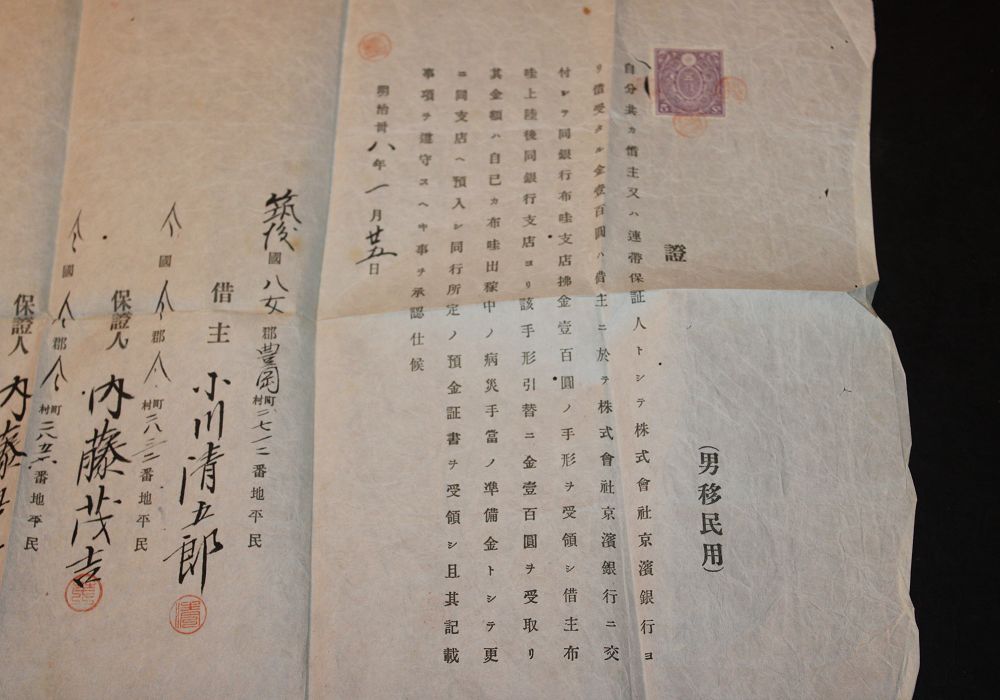 證
(男移民用)
自分共カ借主又ハ連帶保証人トシテ株式會社京濱銀行ヨ
リ借受タル金壹百圓ハ借主ニ於テ株式會社京濱銀行ニ交
付シテ同銀行布哇支店拂金壹百圓ノ手形ヲ受領シ借主布
哇上陸後同銀行支店ヨリ該手形引替ニ金壹百圓ヲ受取リ
其金額ハ自己カ布哇出稼中ノ病災手當ノ準備金トシテ更
ニ同支店ヘ預入シ同行所定ノ預金証書ヲ受領シ且其記載
事項ヲ遵守スヘキ事ヲ承認仕候
明治卅八年一月廿五日
筑後國八女郡豊岡村町二七一二番地平民
借主 小川清五郎
國 郡 村町二八三二番地平民
保證人 内藤茂吉
國 郡 村町二八五六番地平民
保證人 内藤